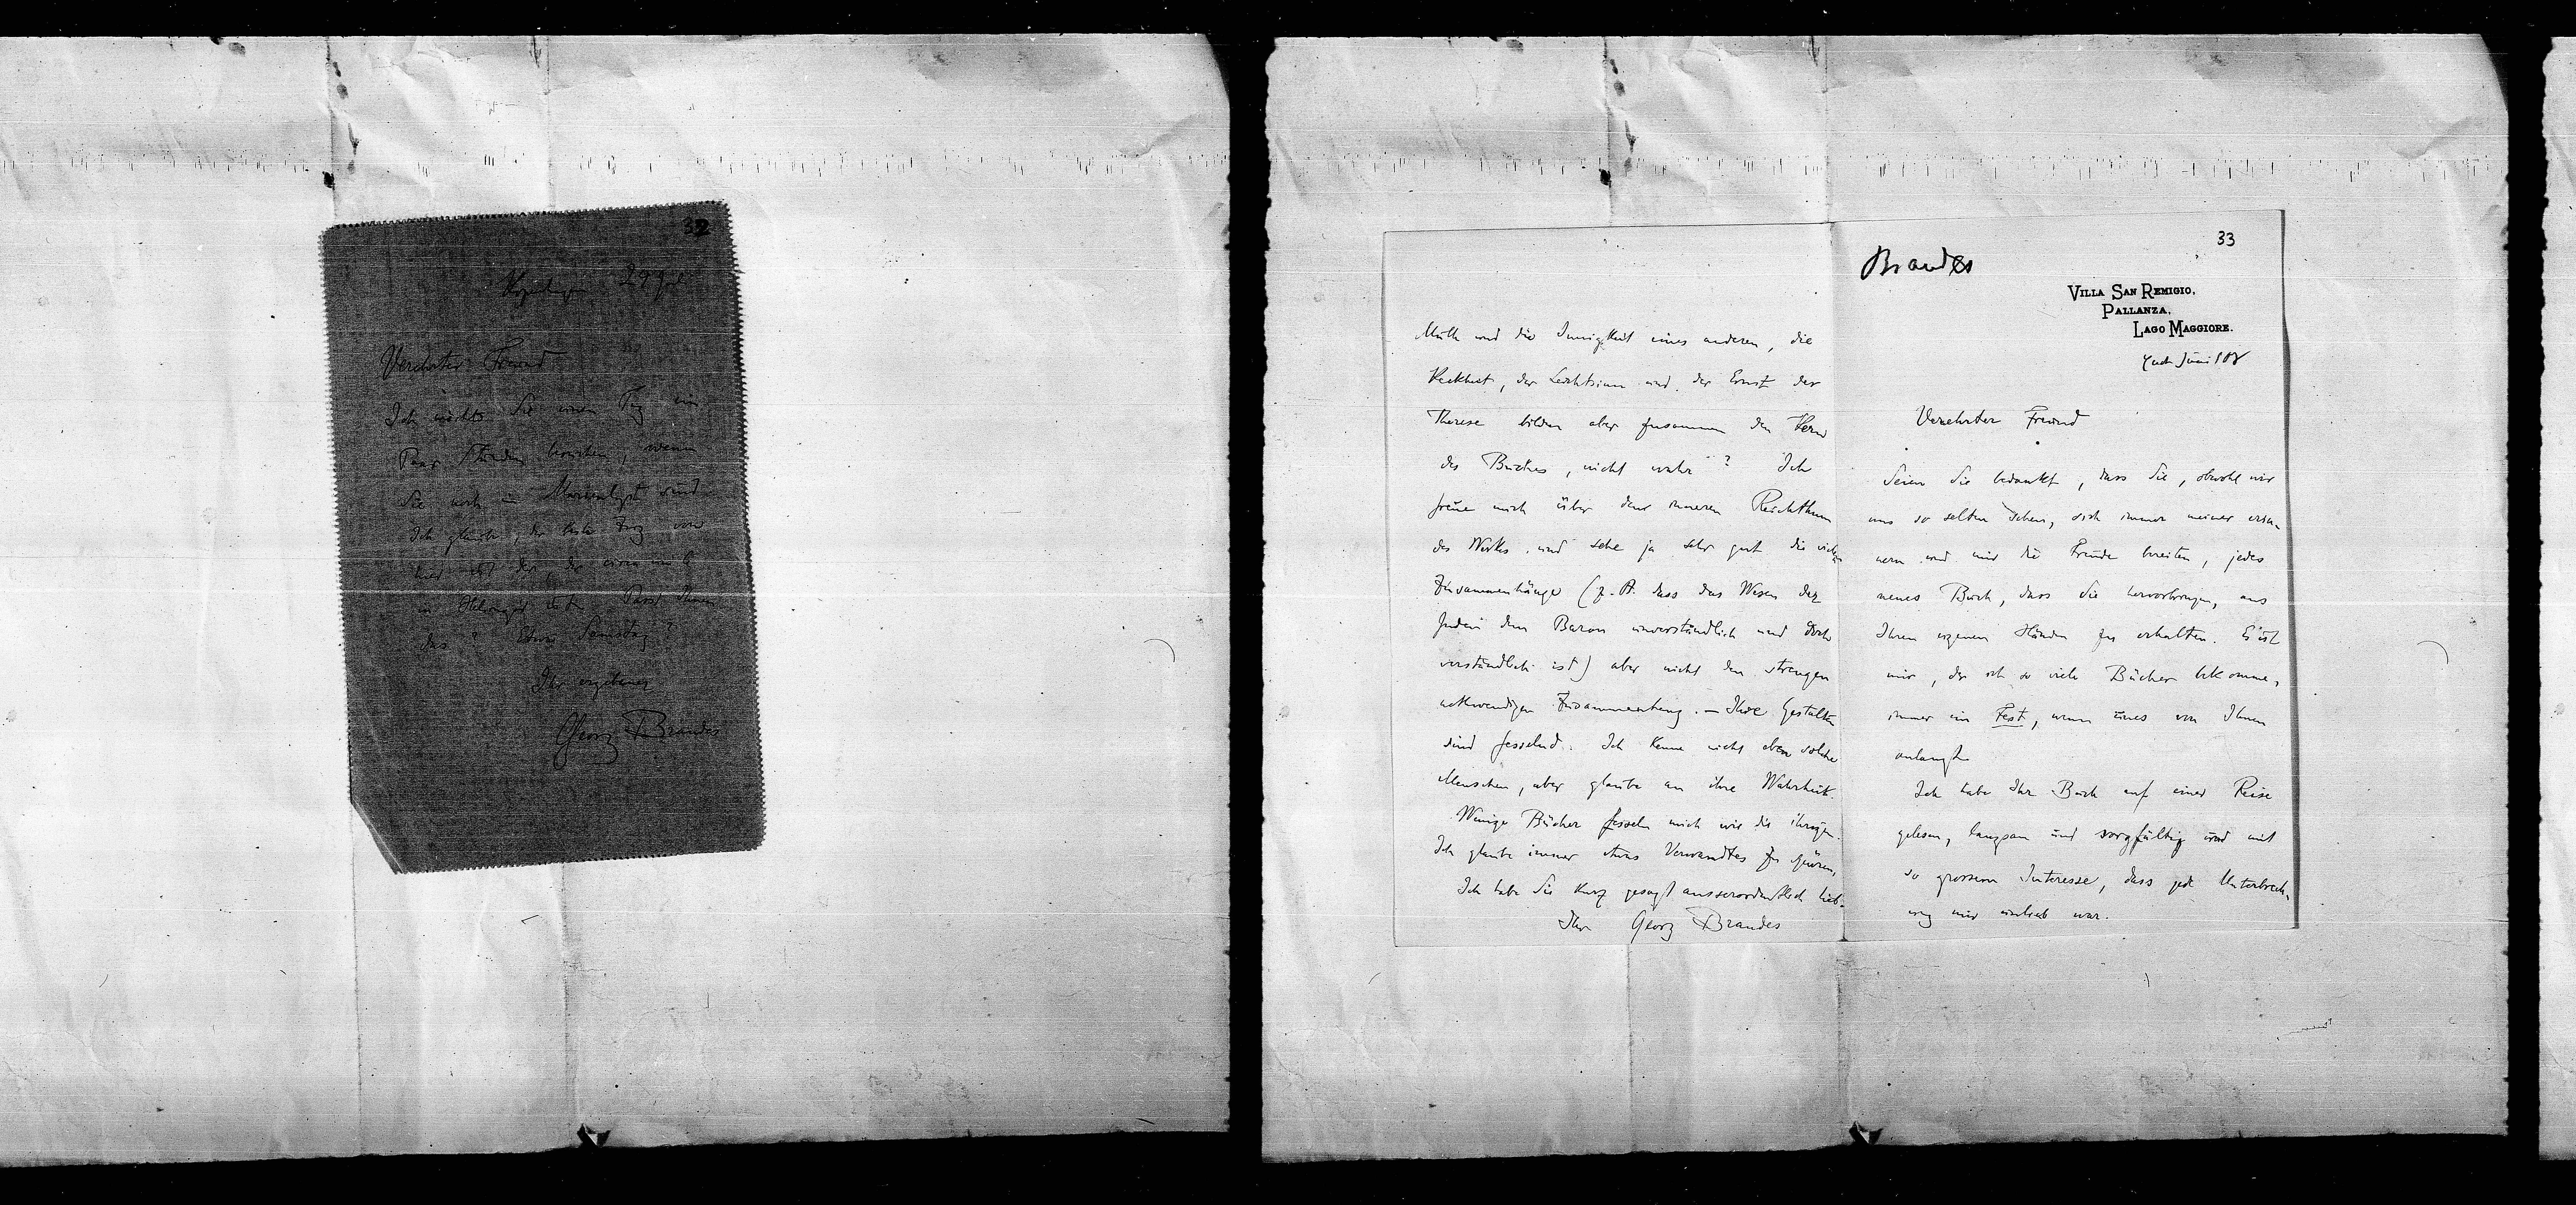 32
Kopenhagen 29 Juli
Verehrter Freund
Ich möchte Sie einen Tag ein
Paar Stunden besuchen, wenn
Sie noch in Marienlyst sind.
Ich glaube, der beste Zug von
hier ist der, der circa um 6
in Helsingör ist. Passt Ihnen
das? Etwa Samstag?
Ihr ergebener
Georg Brandes
33
Brandes
VILLA SAN REMIGIO,
PALLANZA,
LAGO MAGGIORE.
Juni 08
Verehrter Freund
Seien Sie bedankt, dass Sie, obwohl wir
uns so selten sehen, sich immer meiner erin-
nern und mir die Freude bereiten, jedes
neues Buch, dass Sie hervorbringen, aus
Ihren eigenen Händen zu erhalten. Es ist
mir, der ich so viele Bücher bekomme,
immer ein Fest, wenn eines von Ihnen
anlangt
Ich habe Ihr Buch auf einer Reise
gelesen, langsam und sorgfältig und mit
so grossem Interesse, dass jede Unterbrech-
ung mir unlieb war.
Muth und die Innigkeit eines anderen, die
Keckheit, der Leichtsinn und der Ernst der
Therese bilden aber zusammen den Kern
des Buches, nicht wahr? Ich
freue mich über den inneren Reichthum
des Werkes und sehe ja sehr gut die vielen
Zusammenhänge (z. B. dass das Wesen der
Juden dem Baron unverständlich und doch
verständlich ist) aber nicht den strengen
nothwendigen Zusammenhang. — Ihre Gestalten
sind fesselnd. Ich kenne nicht eben solche
Menschen, aber glaube an ihre Wahrheit.
Wenige Bücher fesseln mich wie die ihrigen.
Ich glaube immer etwas Verwandtes zu spüren,
Ich habe Sie kurz gesagt ausserordentlich lieb.
Ihr Georg Brandes